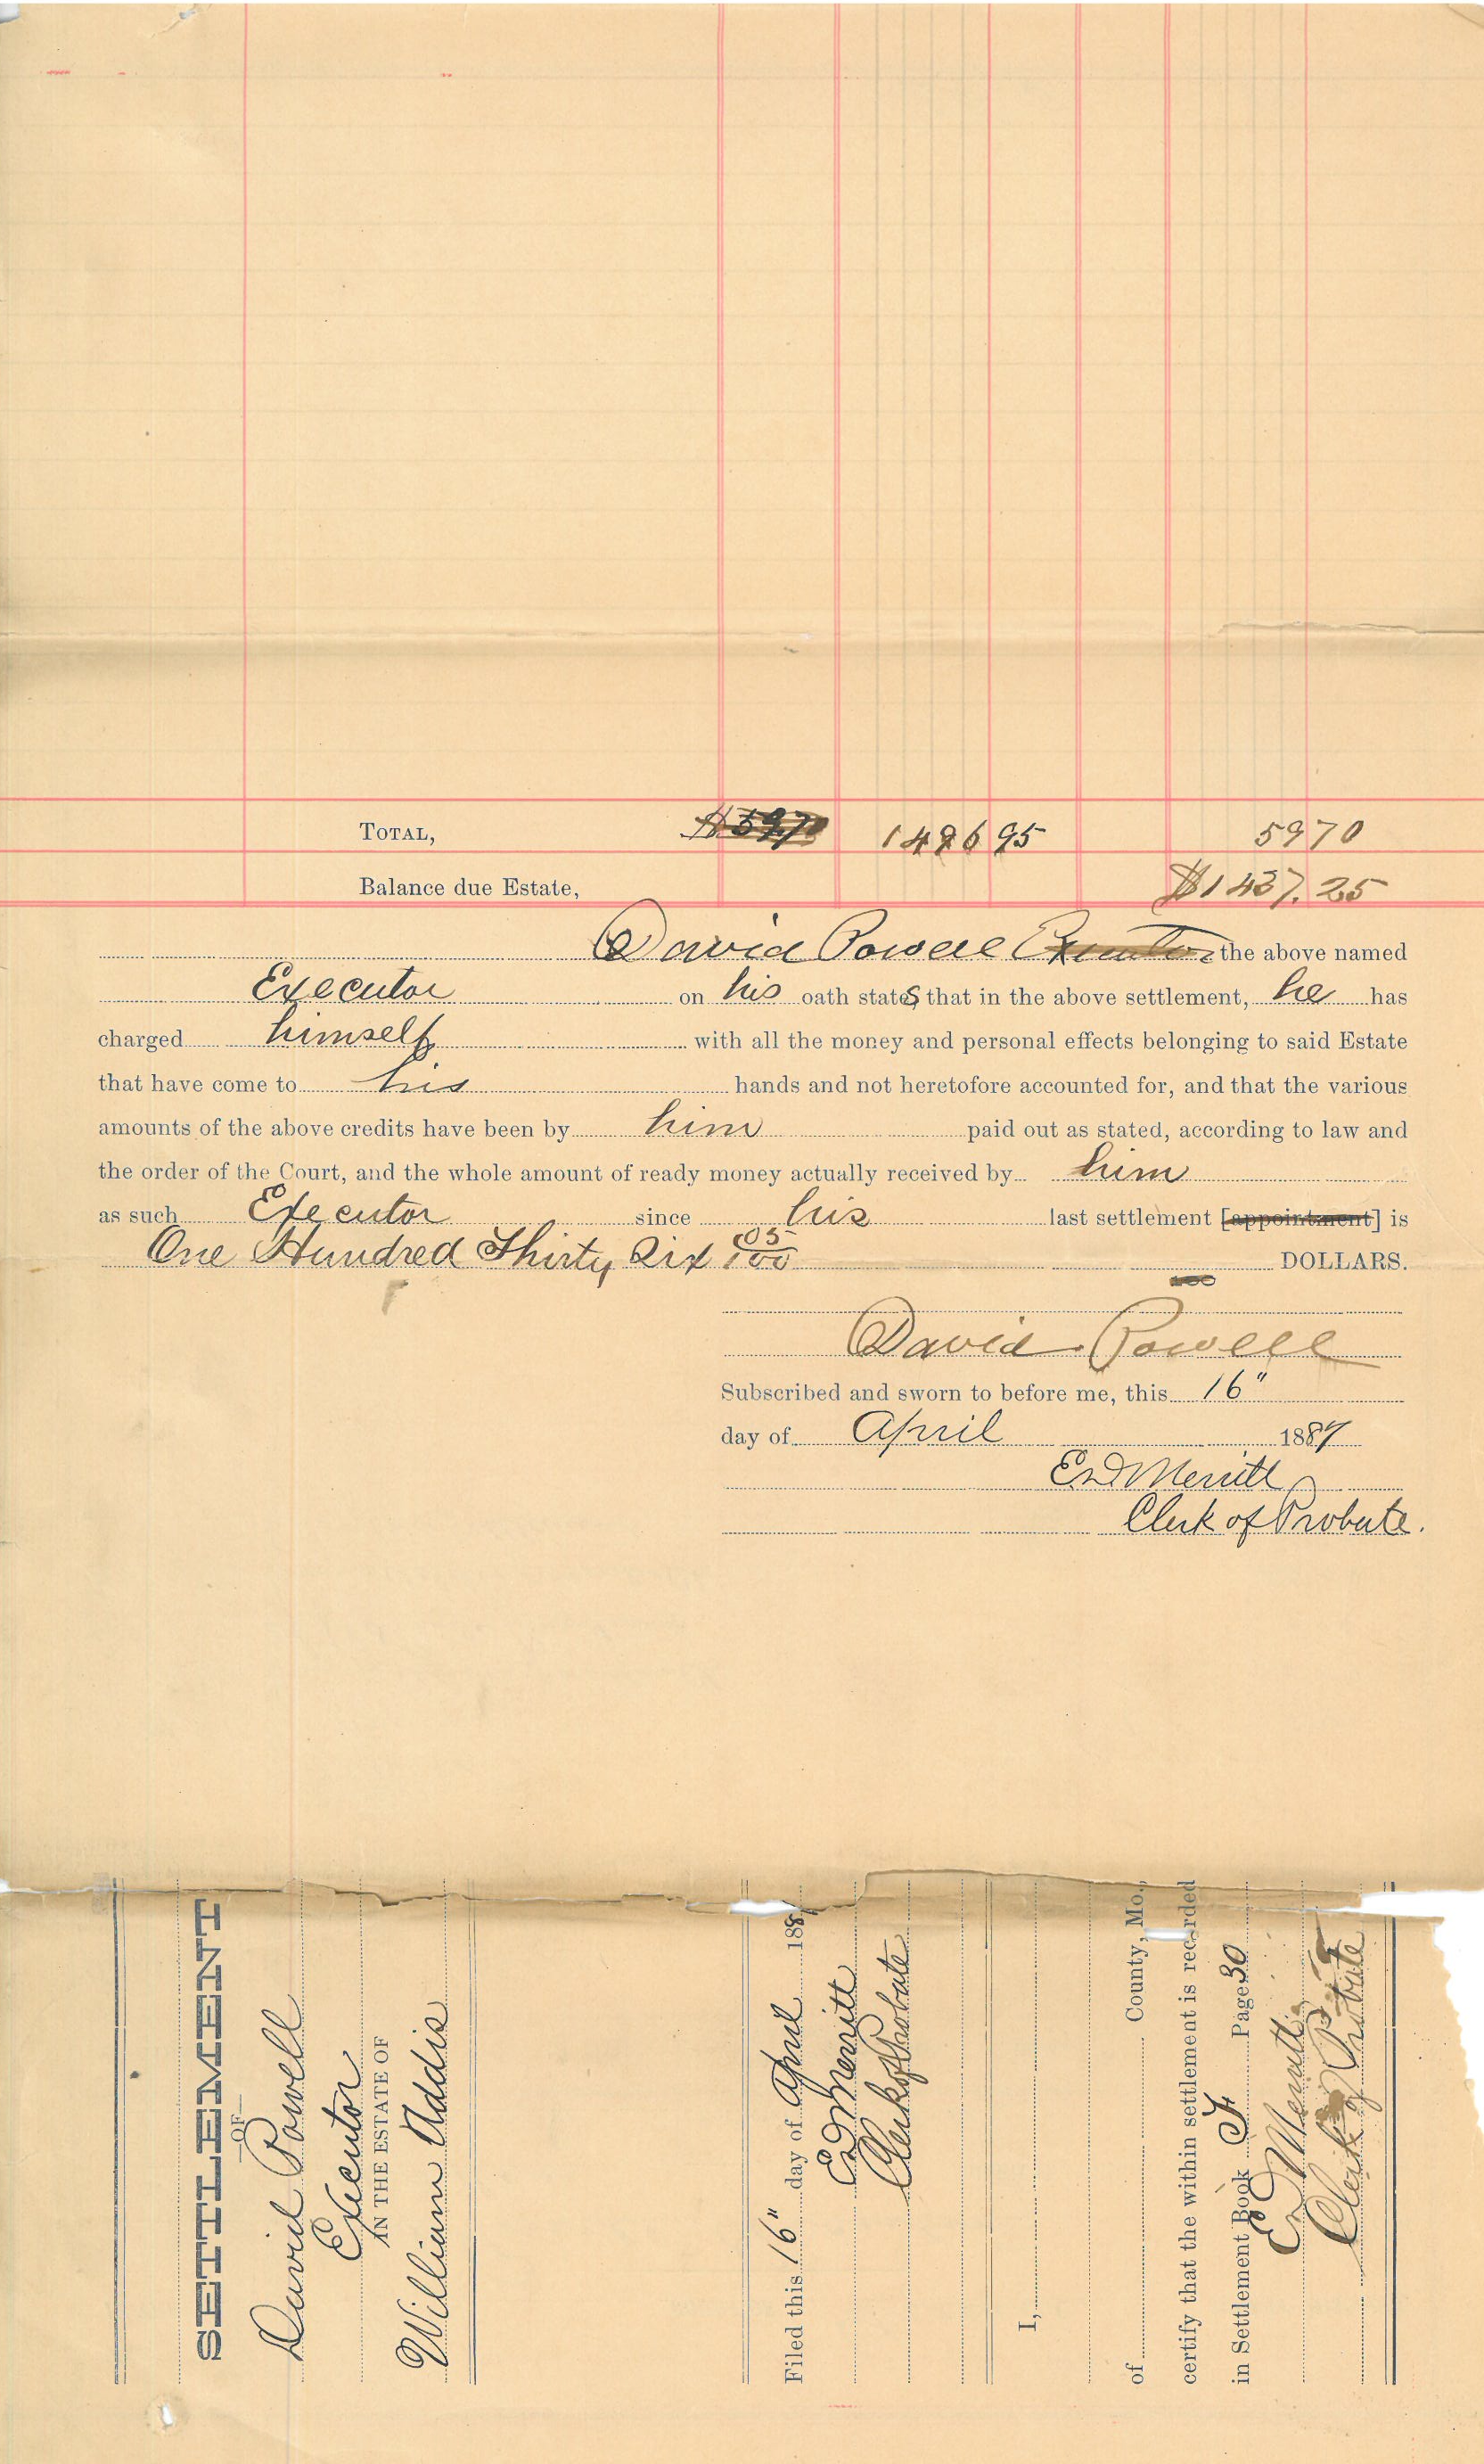 TOTAL, 1496 95 5970
Balance due Estate, $1437.25
David Powell Executor the above named
Executor on his oath states that in the above settlement, he has
charged himself with all the money and personal effects belonging to said Estate
that have come to his hands and not heretofore accounted for, and that the various
amounts of the above credits have been by him paid out as stated, according to law and
the order of the Court, and the whole amount of ready money actually received by him
as such Executor since his last settlement [appointment] is
One Hundred Thirty Six 05/100 DOLLARS.
David Powell
Subscribed and sworn to before me, this 16"
day of April 1889
E D Merritt
Clerk of Probate.
SETTLEMENT
—OF—
David Powell
Executor
IN THE ESTATE OF
William Addis
Filed this 16" day of April 188
E D Merritt
Clerk of Probate
I,
of County, Mo.,
certify that the within settlement is recorded
in Settlement Book F Page 30
E D Merritt
Clerk of Probate